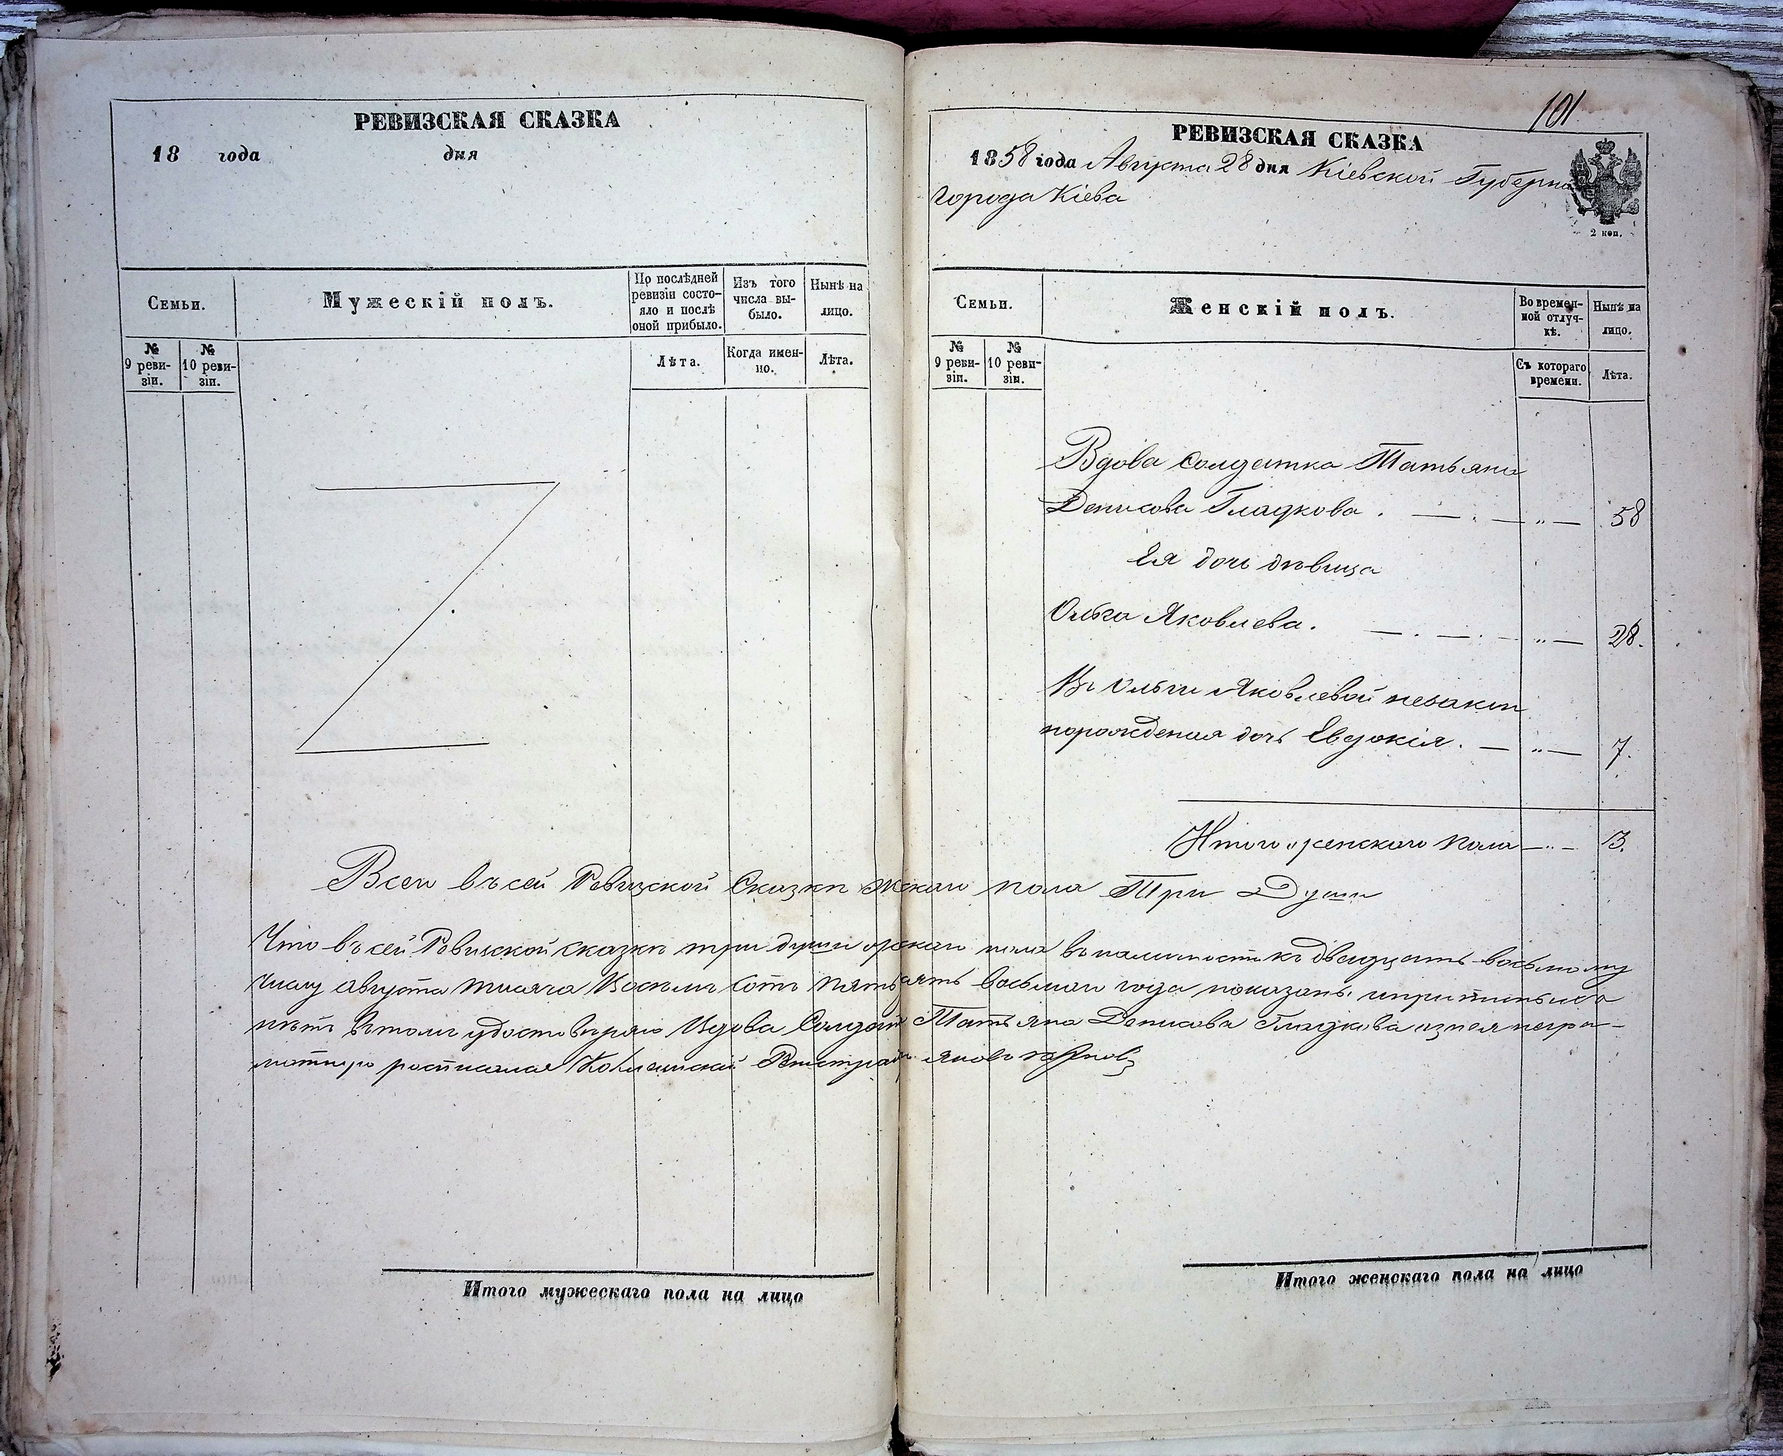 РЕВИЗСКАЯ СКАЗКА
18 года дня
Семьи.
Мужескій полъ.
По послѣдней ревизіи состо-
яло и послѣ
оной прибыло.
Изъ того
числа вы-
было.
Нынѣ на
лицо.
№
9 реви-
зіи.
№
10 реви-
зіи.
Лѣта.
Когда имен-
но.
Лѣта.
Итого мужескаго пола на лицо
101
РЕВИЗСКАЯ СКАЗКА
1858 года Августа 28 дня Кіевской Губерн
города Кіева
2 коп.
Семьи.
Женскій полъ.
Во времен-
ной отлуч-
кѣ.
Нынѣ на
лицо.
№
9 реви-
зіи.
№
10 реви-
зіи.
Съ котораго
времени.
Лѣта.
Вдова солдатка Татьяна
Денисова Гладкова . — . — „ — 58
Ея дочь дѣвица
Ольга Яковлева. — . — . — „ — 28.
Яковлевой незакон
дочь Евдокія. — „ — 7.
Итого женскаго пола — „ — 3.
Всего въ сей Ревизской Сказкѣ пола Три Души
Что въ сей Ревизской сказкѣ три души пола въ наличности къ двадцать восьмому
числу августа тысяча восемь сотъ пятьдесятъ восьмаго года показаны
нѣтъ въ томъ удостовѣряю Вдова Татьяна Денисова Гладкова а за нея негра-
мотную росписался
Итого женскаго пола на лицо